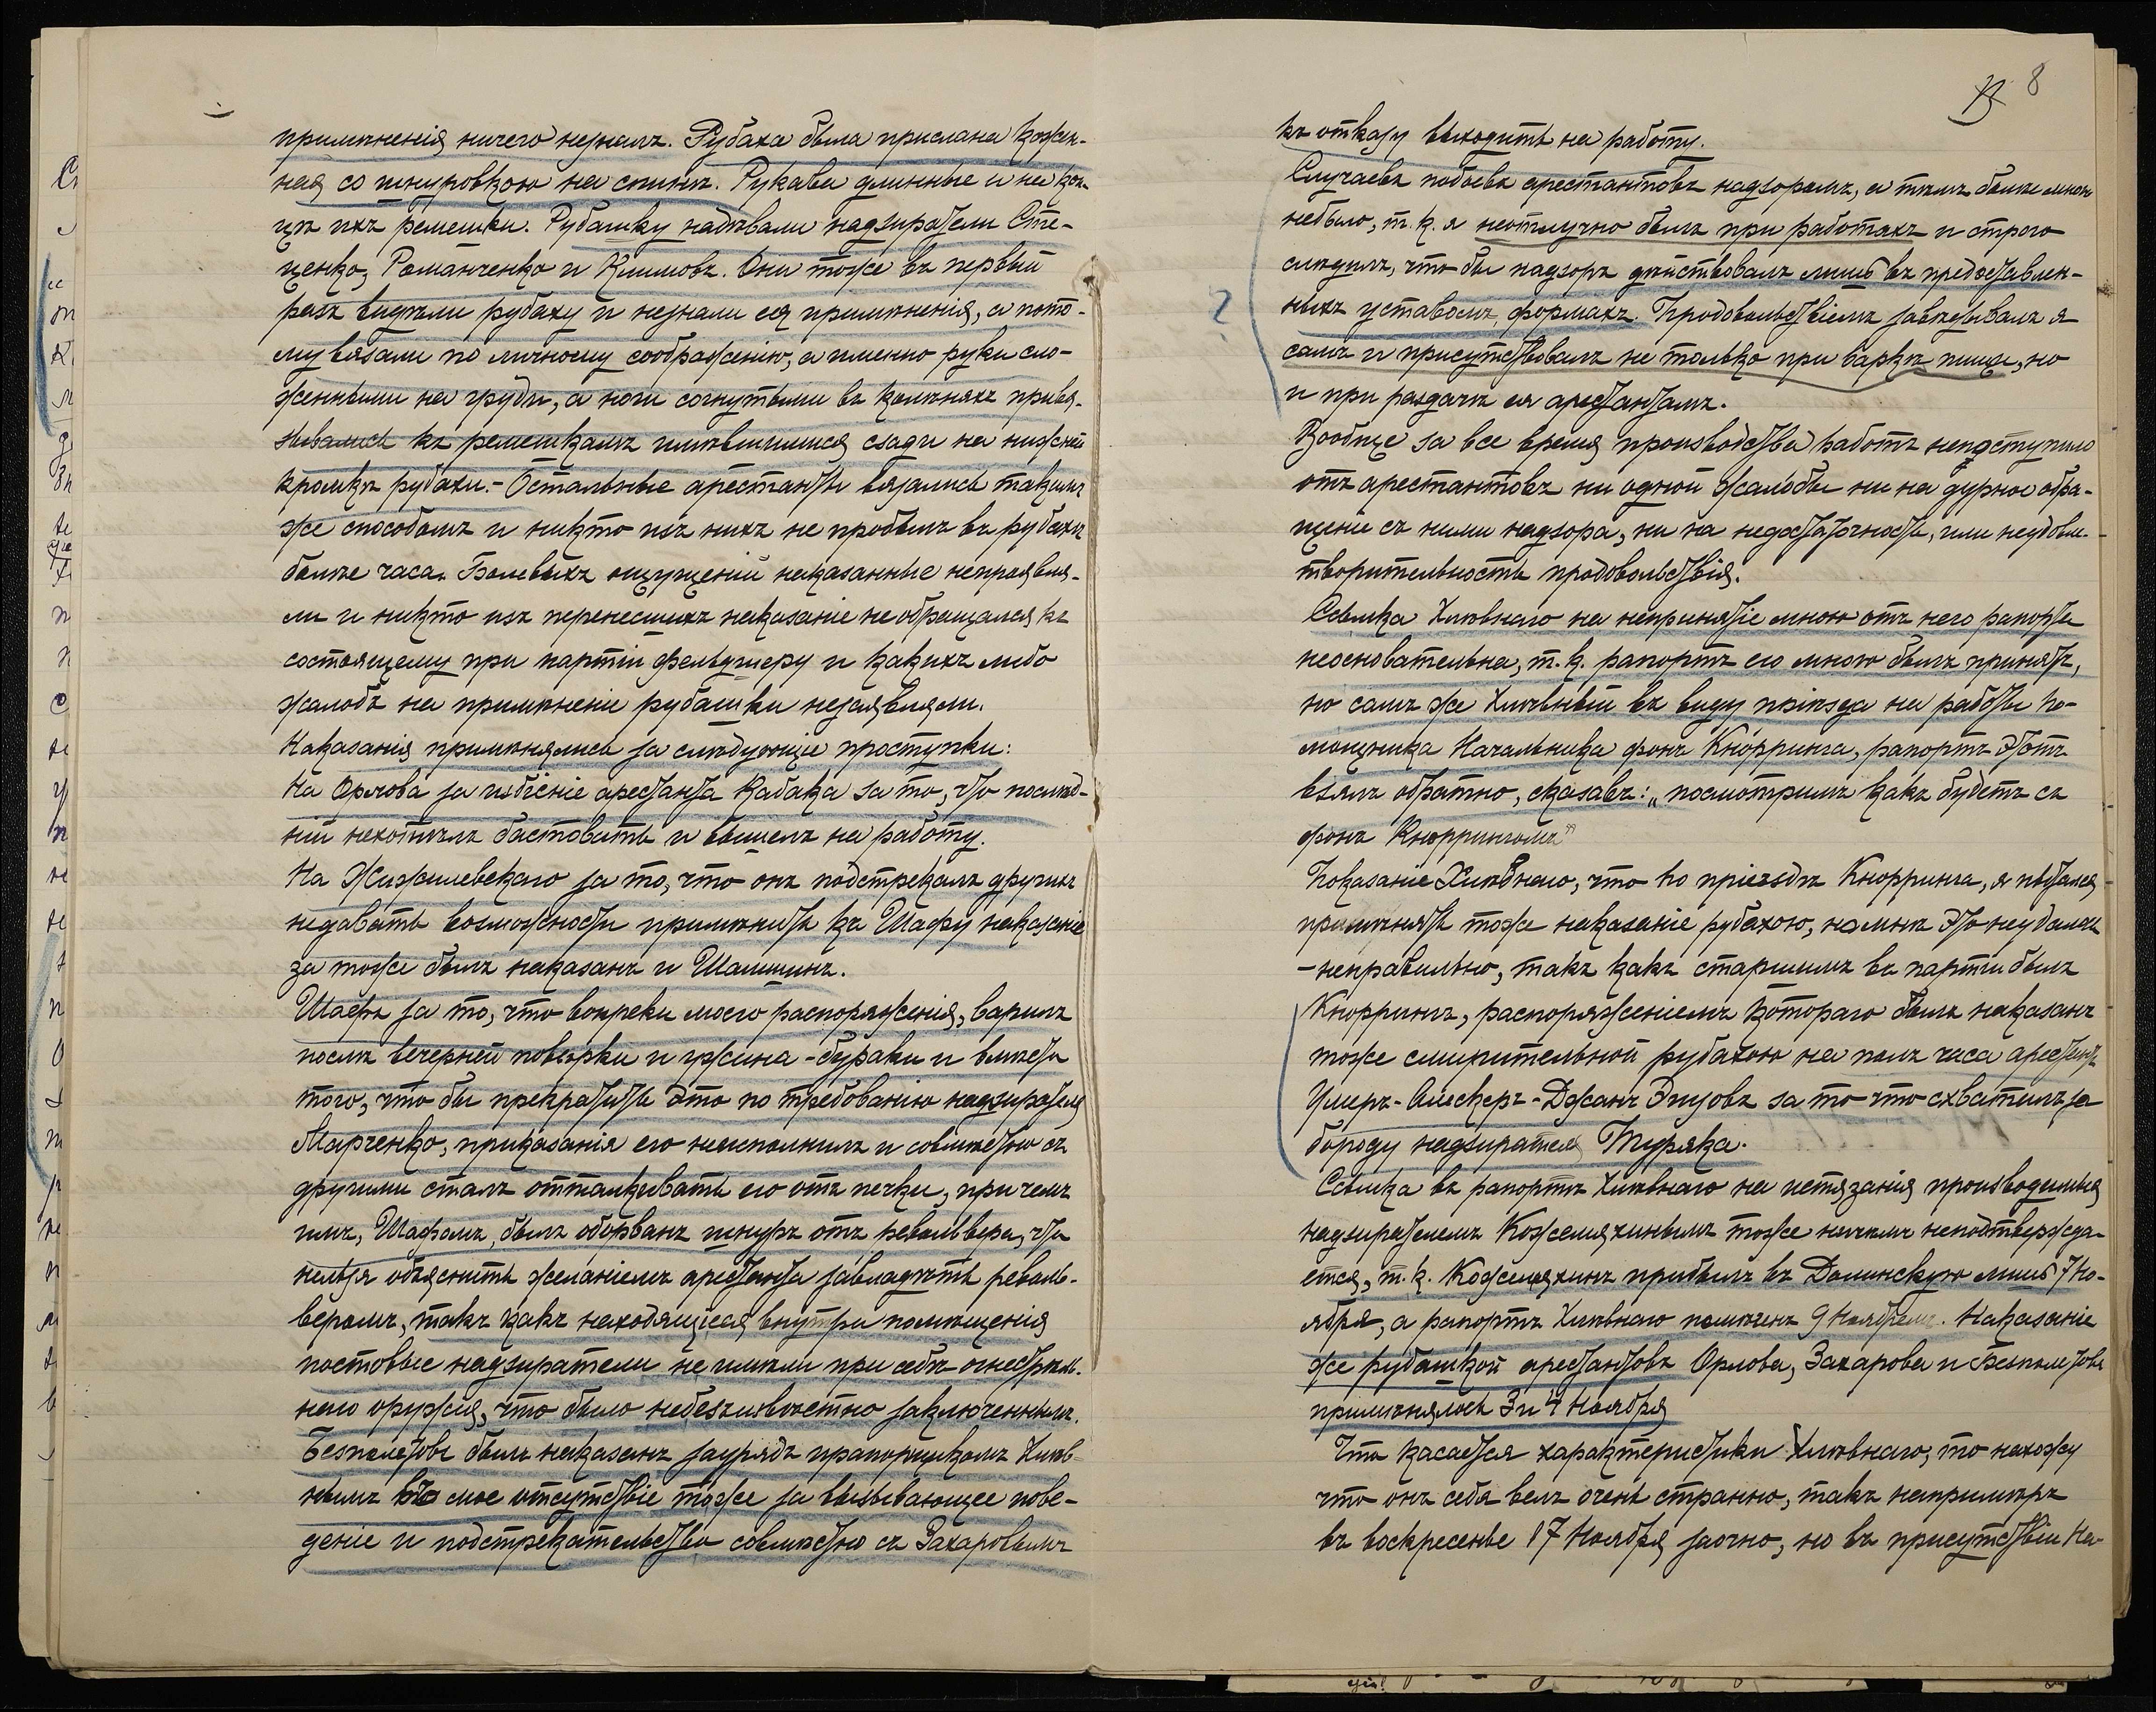 примѣненія ничего незналъ. Рубаха была прислана кожен-
ная со шнуровкою на спинѣ. Рукава длинные и на кон-
цѣ ихъ ремешки. Рубашку надѣвали надзиратели Сте-
ценко, Романченко и Климовъ. Они тоже въ первый
разъ видѣли рубаху и незнали ея примѣненія, а пото-
му вязали по личному соображенію, а именно руки сло-
женными на груди, а ноги согнутыми въ колѣняхъ привя-
зывались къ ремешкамъ имѣвшимися сзади на нижней
кромкѣ рубахи. - Остальные арестанты вязались такимъ
же способомъ и никто изъ нихъ не пробылъ въ рубахѣ
болѣе часа. Болевыхъ ощущеній наказанные непроявля-
ли и никто изъ перенесшихъ наказаніе не обращался къ
состоящему при партіи фельдшеру и какихъ либо
жалобъ на примѣненіе рубашки незаявляли.
Наказанія примѣнялись за слѣдующіе проступки:
На Орлова за избіеніе арестанта Кабака за то, что послѣд-
ній нехотѣлъ бастовать и вышелъ на работу.
На Жижилевскаго за то, что онъ подстрекалъ другихъ
недавать возможности примѣнить къ Шафу наказаніе
за тоже былъ наказанъ и Шалминъ.
Шафъ за то, что вопреки моего распоряженія, варилъ
послѣ вечерней повѣрки и ужина - бураки и вмѣсто
того, что бы прекратить это по требованію надзирателя
Марченко, приказанія его неисполнилъ и совмѣстно съ
другими сталъ отталкивать его отъ печки, при чемъ
имъ, Шафомъ, былъ оборванъ шнуръ отъ револьвера, что
нельзя объяснить желаніемъ арестанта завладѣть револь-
веромъ, такъ какъ находящіеся внутри помѣщенія
постовые надзиратели не имѣли при себѣ огнестрѣль-
наго оружія, что было небезъизвѣстно заключеннымъ.
Безполетовъ былъ наказанъ заурядъ прапорщикомъ Хлѣв-
нымъ въ мое отсутствіе тоже за вызывающее пове-
деніе и подстрекательство совмѣстно съ Захаровымъ
8
къ отказу выходить на работу.
Случаевъ побоевъ арестантовъ надзоромъ, а тѣмъ болѣе мною
небыло, т. к. я неотлучно былъ при работахъ и строго
слѣдилъ, что бы надзоръ дѣйствовалъ лишь въ предоставлен-
ныхъ уставомъ, формахъ. Продовольствіемъ завѣдывалъ я
самъ и присутствовалъ не только при варкѣ пищи, но
и при раздачѣ ея арестантамъ.
Вообще за все время производства работъ непоступило
отъ арестантовъ ни одной жалобы ни на дурное обра-
щеніе съ ними надзора, ни на недостаточность, или неудовле-
творительность продовольствія.
Ссылка Хлѣвнаго на непринятіе мною отъ него рапорта
неосновательна, т. к. рапортъ его мною былъ принятъ,
но самъ же Хлѣвный въ виду пріѣзда на работы По-
мощника Начальника фонъ Кнорринга, рапортъ этотъ
взялъ обратно, сказавъ: „посмотримъ какъ будетъ съ
фонъ Кноррингомъ"
Показаніе Хлѣвнаго, что по пріездѣ Кнорринга, я пытался
примѣнять тоже наказаніе рубахою, но мнѣ это неудалось
- неправильно, такъ какъ старшимъ въ партіи былъ
Кноррингъ, распоряженіемъ котораго былъ наказанъ
тоже смирительной рубахою на полъ часа арестантъ
Умеръ-Аскеръ-Джанъ за то что схватилъ за
бороду надзирателя Туряка.
Ссылка въ рапортѣ Хлѣвнаго на истязанія производимыя
надзирателемъ Кожемякинымъ тоже ничѣмъ неподтвержда-
ется, т. к. Кожемякинъ прибылъ въ Долинскую лишь 7 Но-
ября, а рапортъ Хлѣвнаго помѣченъ 9 Ноябремъ. Наказаніе
же рубашкой арестантовъ Орлова, Захарова и Безполетова
примѣнялось 3 и 4 Ноября
Что касается характеристики Хлѣвнаго, то нахожу
что онъ себя велъ очень странно, такъ напримѣръ
въ воскресенье 17 Ноября заочно, но въ присутствіи На-